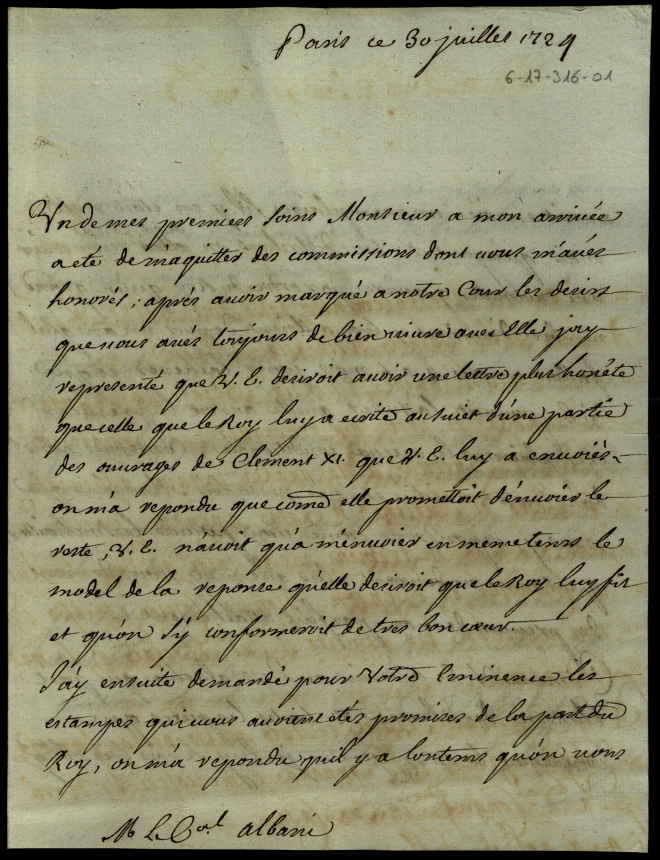 Paris ce 30 juillet 1724
6-17-316-01
Un de mes premiers soins Monsieur a mon arrivée
a eté de m'aquitter des commissions dont vous m'avés
honorés; aprés avoir marqué a notre Cour les desirs
que vous avés toujours de bien vivre avec Elle j'ay
representé que V. E. desiroit avoir une lettre plus honéte
que celle que le Roy luy a ecrite au sujet d'une partie
des ouvrages de Clement XI. que V. E. luy a envoiés
on m'a repondu que come elle promettoit d'envoier le
reste, V. E. n'avoit qu'a m'envoier en meme tems le
model de la reponse qu'elle desiroit que le Roy luy fit
et qu'on s'y conformeroit de tres bon cœur.
J'ay ensuite demandé pour Votre Eminence les
estampes qui vous avoient etés promises de la part du
Roy, on m'a repondu qu'il y a lontems qu'on vous
M. le Cal. albani